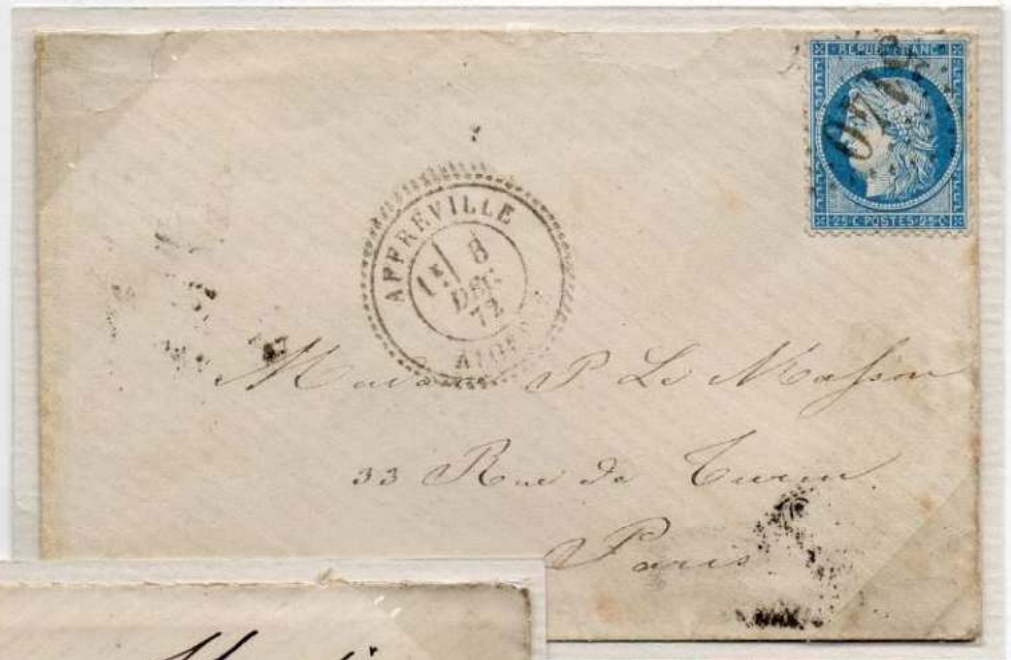 REPUB FRANC
25 C POSTES 25 C
AFFREVILLE
1E 8
DEC.
72
Madame P Le Masson
33 Rue de Turin.
Paris